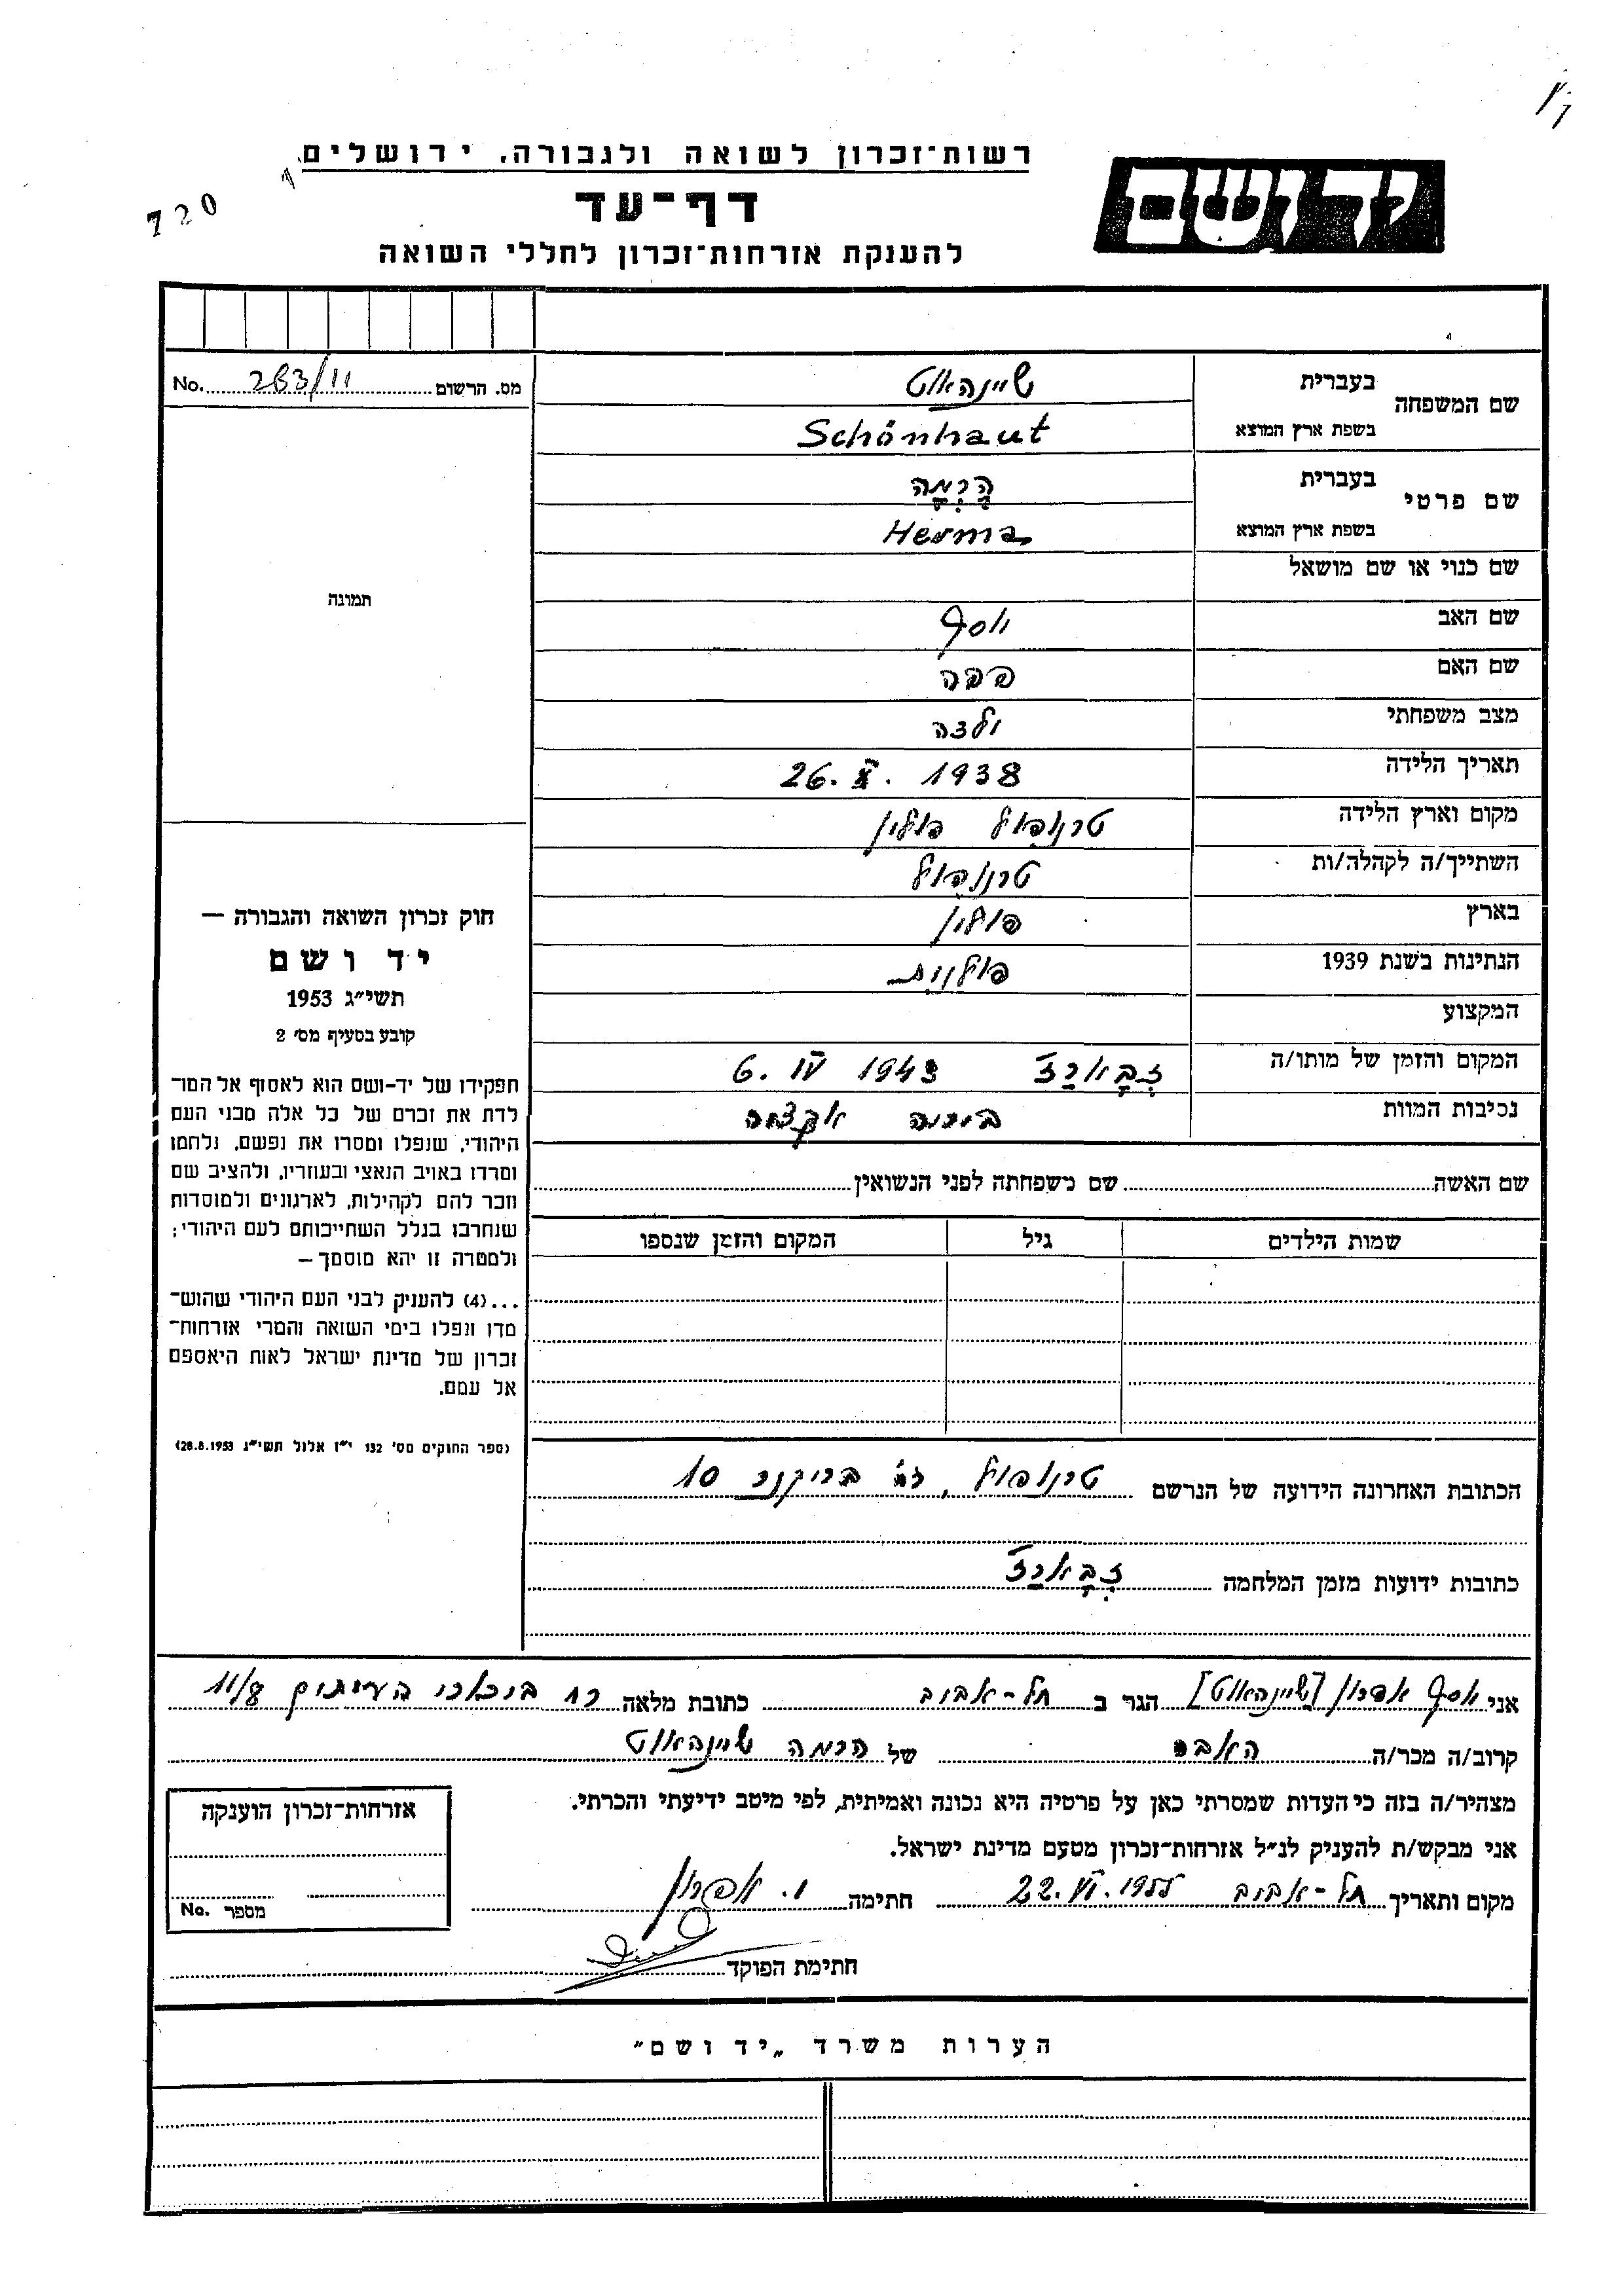 רשות־זכרון לשואה ולגבורה, ירושלים
ידושם
720
דף־עד
להענקת אזרחות־זכרון לחללי השואה
מס. הרשום 283/11 No.
שם המשפחה בעברית שיינהאוט
בשפת ארץ המוצא Schönhaut
שם פרטי בעברית הֶרְמָה
בשפת ארץ המוצא Herma
שם כנוי או שם מושאל
שם האב יוסף
שם האם פפה
מצב משפחתי ילדה
תאריך הלידה 26. X. 1938
מקום וארץ הלידה טרנופול פולין
השתייך/ה לקהלה/ות טרנופול
בארץ פולין
הנתינות בשנת 1939 פולנית
המקצוע
המקום והזמן של מותו/ה זְבָּארַז' 6. IV 1943
נסיבות המוות ביריה אקציה
תמונה
חוק זכרון השואה והגבורה —
יד ושם
תשי״ג 1953
קובע בסעיף מס׳ 2
תפקידו של יד-ושם הוא לאסוף אל המו־
לדת את זכרם של כל אלה מבני העם
היהודי, שנפלו ומסרו את נפשם, נלחמו
ומרדו באויב הנאצי ובעוזריו, ולהציב שם
וזכר להם לקהילות, לארגונים ולמוסדות
שנחרבו בגלל השתייכותם לעם היהודי;
ולמטרה זו יהא מוסמך —
...(4) להעניק לבני העם היהודי שהוש־
מדו ונפלו בימי השואה והמרי אזרחות־
זכרון של מדינת ישראל לאות היאספם
אל עמם.
(ספר החוקים מס׳ 132 י״ז אלול תשי״ג 28.8.1953)
שם האשה שם משפחתה לפני הנשואין
שמות הילדים גיל המקום והזמן שנספו
הכתובת האחרונה הידועה של הנרשם טרנופול, רח' בריקנר 10
כתובות ידועות מזמן המלחמה זְבָּארַז'
אני יוסף אפרון [שיינהאוט] הגר ב תל-אביב כתובת מלאה רח 11/8
קרוב/ה מכר/ה האבא של הרמה שיינהאוט
מצהיר/ה בזה כי העדות שמסרתי כאן על פרטיה היא נכונה ואמיתית, לפי מיטב ידיעתי והכרתי.
אני מבקש/ת להעניק לנ״ל אזרחות־זכרון מטעם מדינת ישראל.
מקום ותאריך תל-אביב 22.VI.1955 חתימה י. אפרון
חתימת הפוקד
אזרחות־זכרון הוענקה
מספר No.
הערות משרד „יד ושם״